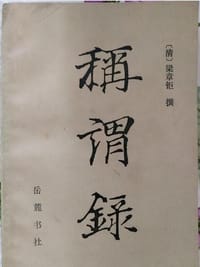 〔清〕梁章钜 撰
稱謂錄
岳麓书社